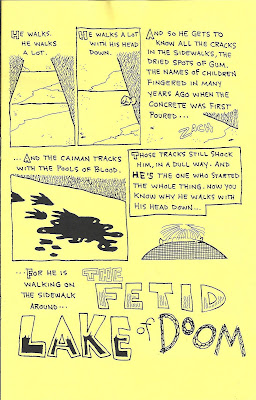 HE WALKS.
HE WALKS
A LOT.
HE WALKS A LOT
WITH HIS HEAD
DOWN.
AND SO HE GETS TO
KNOW ALL THE CRACKS
IN THE SIDEWALKS, THE
DRIED SPOTS OF GUM.
THE NAMES OF CHILDREN
FINGERED IN MANY
YEARS AGO WHEN THE
CONCRETE WAS FIRST
POURED...
ZACH
...AND THE CAIMAN TRACKS
WITH THE POOLS OF BLOOD.
THOSE TRACKS STILL SHOCK
HIM, IN A DULL WAY. AND
HE'S THE ONE WHO STARTED
THE WHOLE THING. NOW YOU
KNOW WHY HE WALKS WITH
HIS HEAD DOWN...
...FOR HE IS
WALKING ON
THE SIDEWALK
AROUND...
THE
FETID
LAKE of DOOM